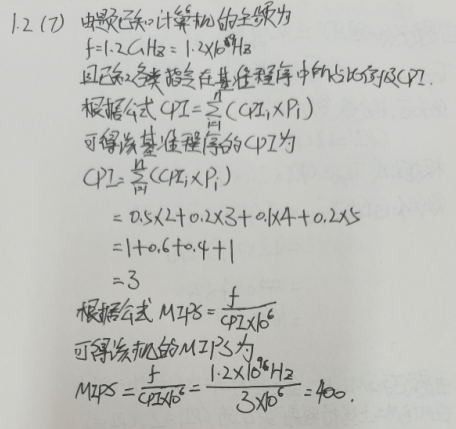 1.2 (7) 由题已知计算机的主频为
f=1.2GHz=1.2×10⁹Hz
且已知各类指令在基准程序中所占比例及CPI.
根据公式 CPI=∑ⁿᵢ₌₁(CPIᵢ×Pᵢ)
可得该基准程序的CPI为
CPI=∑ⁿᵢ₌₁(CPIᵢ×Pᵢ)
=0.5×2+0.2×3+0.1×4+0.2×5
=1+0.6+0.4+1
=3
根据公式 MIPS=f/(CPI×10⁶)
可得该机的MIPS为
MIPS=f/(CPI×10⁶)=1.2×10⁹Hz/(3×10⁶)=400.